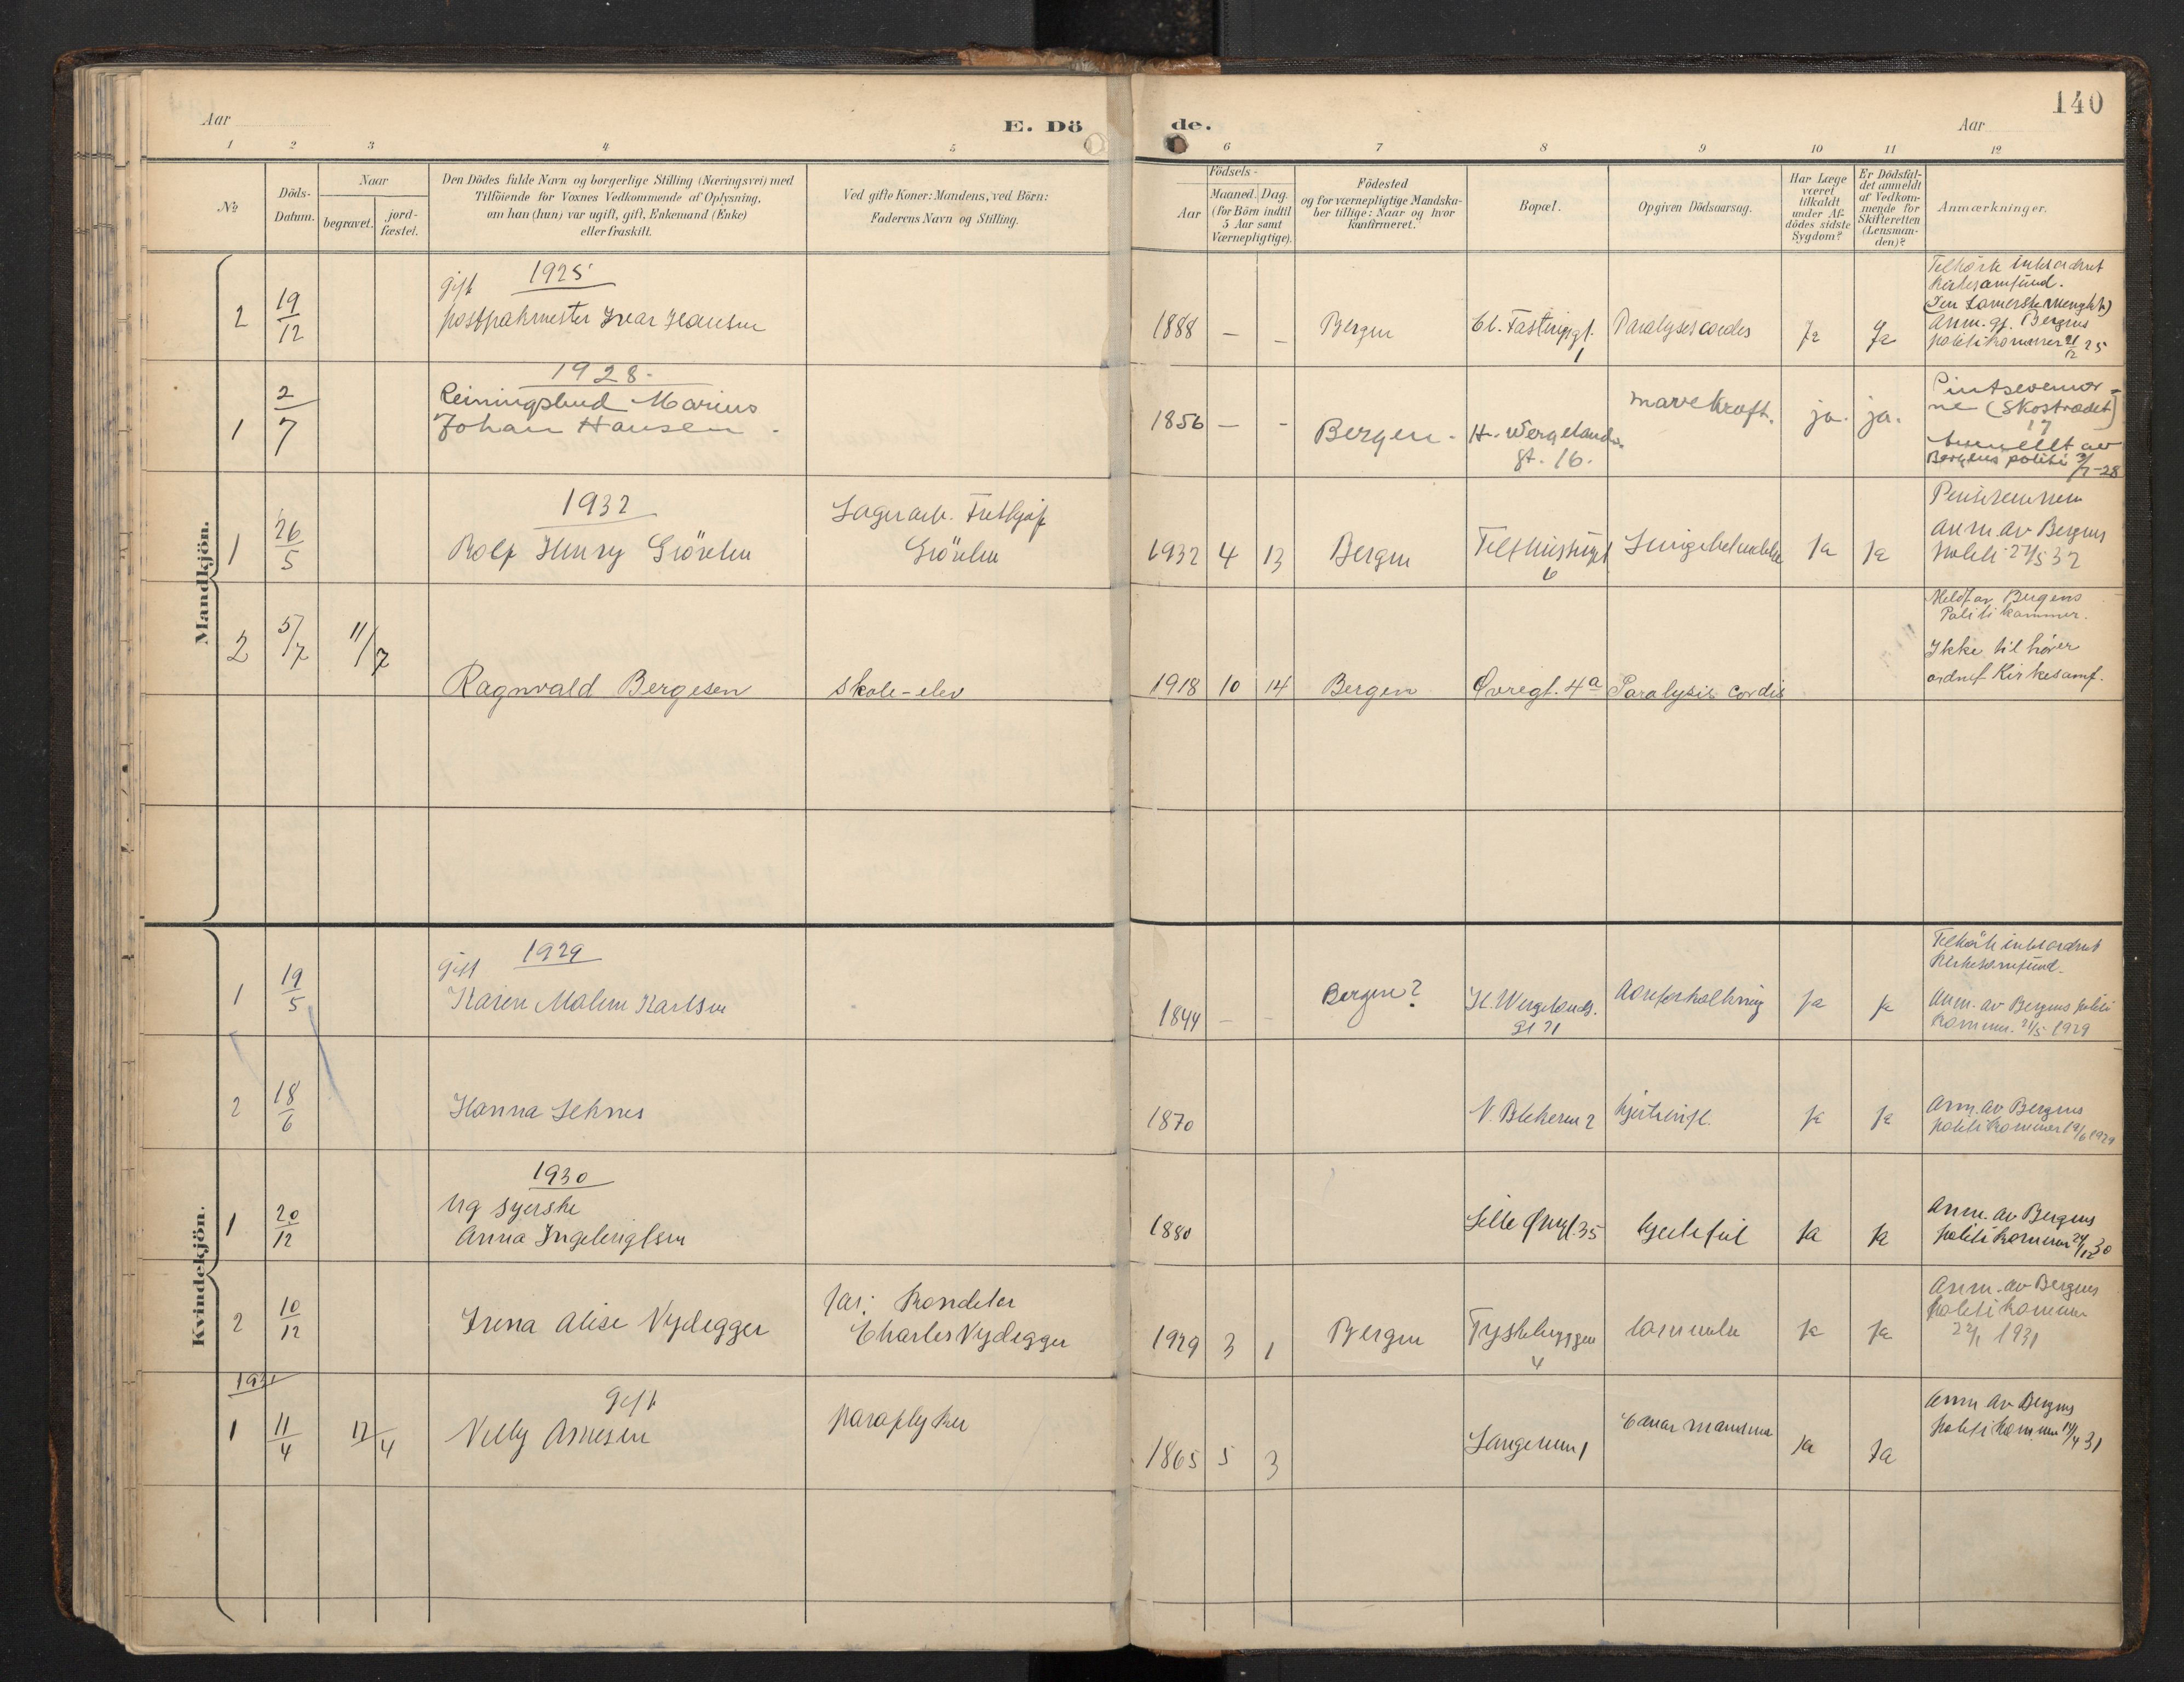 140
Aar
E. Dö
de.
Aar
1 2 3 4 5 6 7 8 9 10 11 12
No
Döds-
Datum.
Naar
begravet.
jord-
fæstet.
Den Dödes fulde Navn og borgerlige Stilling (Næringsvei) med
Tilföiende for Voxnes Vedkommende af Oplysning,
om han (hun) var ugift, gift, Enkemand (Enke)
eller fraskilt.
Ved gifte Koner: Mandens, ved Börn:
Faderens Navn og Stilling.
Födsels-
Aar
Maaned. Dag.
(for Börn indtil
5 Aar samt
Værnepligtige).
Födested
og for værnepligtige Mandska-
ber tillige: Naar og hvor
konfirmeret.
Bopæl.
Opgiven Dödsaarsag.
Har Læge
været
tilkaldt
under Af-
dödes sidste
Sygdom?
Er Dödsfal-
det anmeldt
af Vedkom-
mende for
Skifteretten
(Lensman-
den)?
Anmærkninger.
Mandkjön.
gift 1925
2 19/12 postpakmester Ivar Hansen
1888 — — Bergen Cl. Fastingsgt. 1 Paralysis cordis Ja Ja
Anm. Bergens
politikammer 21/12 25
1928.
1 2/7 Reiningsbud Marius
Johan Hansen.
1856 — - Bergen. H. Wergelands
gt. 16.
mavekræft. ja. ja.
Bergens politi 3/7-28
1932
1 26/5 Rolf Henry
1932 4 13 Bergen 6 Ja Ja
Anm. av Bergens
politi 27/5 32
2 5/7 11/7 Ragnvald Bergesen skole-elev
1918 10 14 Bergen Øvregt. 4a Paralysis cordis
Meldt av Bergens
Politikammer.
Ikke tilhører
ordnet Kirkesamf.
Kvindekjön.
gift 1929
1 19/5 Karen Malene Karlsen
1844 - - Bergen? H. Wergelands.
gt 21
Aareforkalkning Ja Ja
kirkesamfund.
Anm. av Bergens politi
kammer. 21/5 1929
2 18/6 Hanna
1870 Ja Ja
Anm. av Bergens
politikammer 19/6 1929
1930
1 20/12 Ug syerske
Anna Ingebrigtsen
1880 Lille Øvregt. 35 hjertefeil Ja Ja
Anm. av Bergens
politikammer 24/12 30
2 10/12 Irena Alise Nydegger
far: Konditor
Charles Nydegger
1929 3 1 Bergen Tyskebryggen
4
Ja Ja
Anm. av Bergens
politikammer
22/1 1931
1931
1 11/4 17/4 gift
Nelly Arnesen
1865 5 3 1 Ja Ja
Anm av Bergens
politikammer 14/4 31